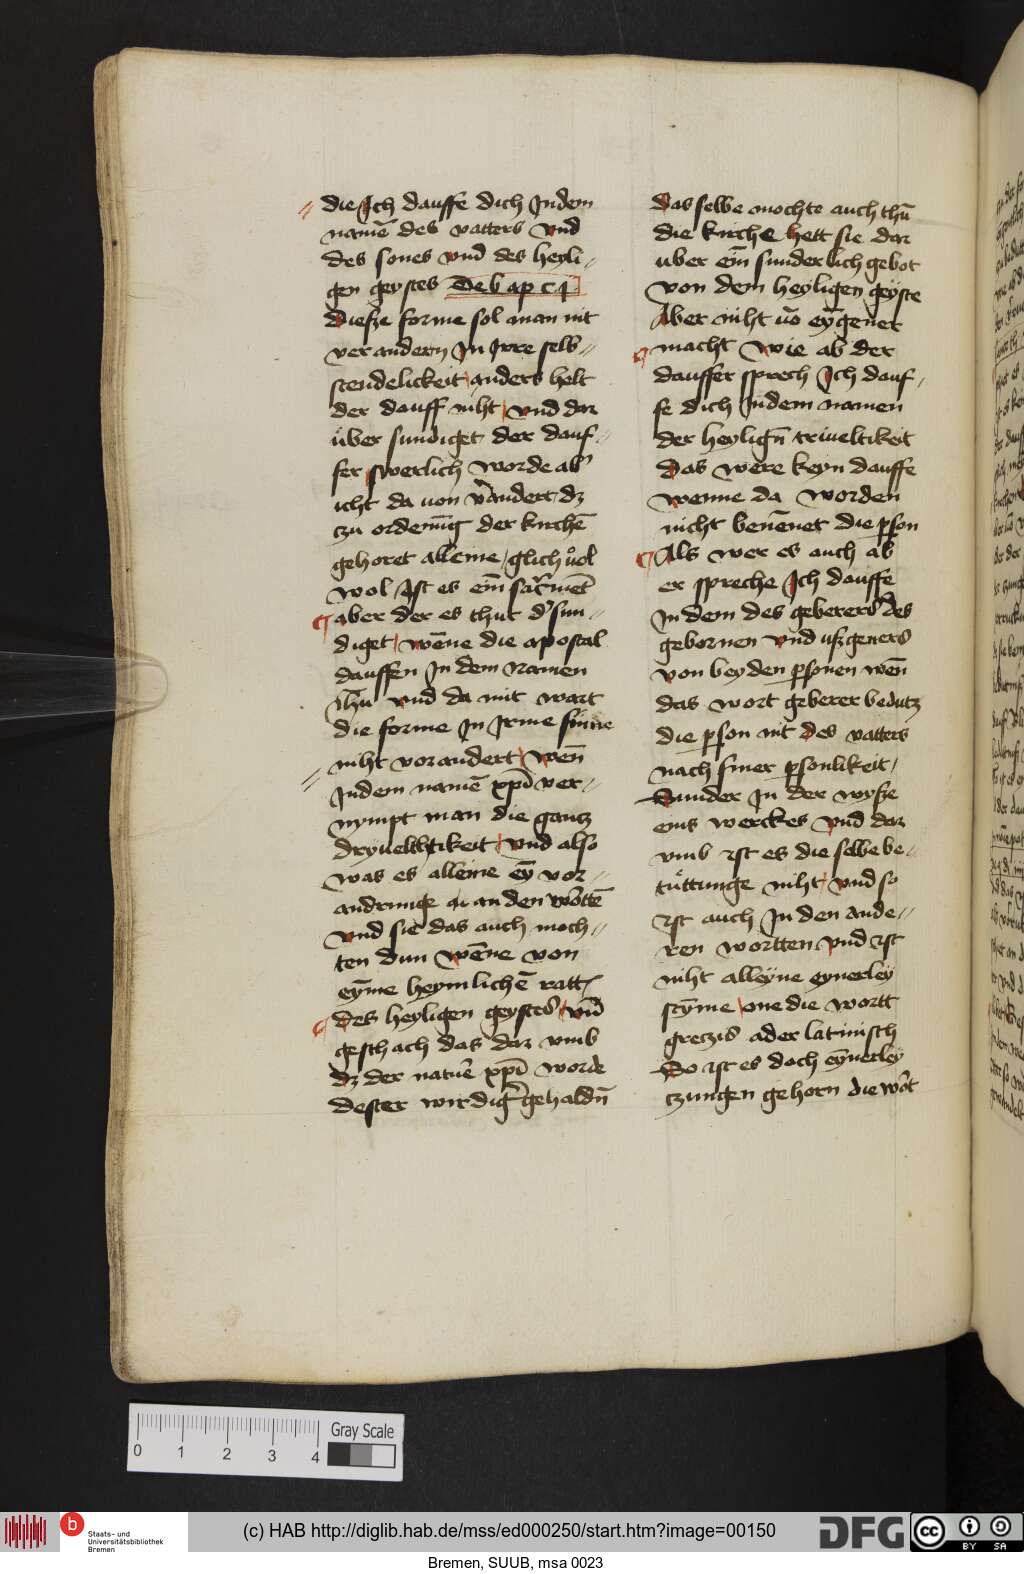 die Ich dauffe dich Indem
namē des vatters vnd
des sones vnd des heyli//
gen geystes De b ap c q
diesze forme sol man nit
verandern In Irre selb//
stendelickeit anders helt
der dauff niht vnd dar
über sundiget der dauf//
fer swerlich worde ab
icht da uon v̄andert dz
czu ordenūg der kirchē
gehoret alleine glich uͦol
wol Ist es ein sac̄mēt
aber der es thut d' sun//
diget wēne die apostal
dauffen In dem Namen
Jhū vnd da mit wart
die forme In Irme sinne
niht vorandert wēn
Indem namē xpī ver//
nympt man die gantz
dryueltikeit vnd also
was es alleine ey̅ vor//
andrunge an den wortē
vnd sie das auch moch//
ten dun wēne von
ey̅me heymlichē ratt
des heyligen geystes vn̄
geschach das dar vmb
dz der name xpī worde
dester wirdig' gehaldn̄
das selbe mochte auch thū
die kirche hett sie dar
uber ein sunderlich gebot
von dem heyligen geyste
Aber niht uō ey̅gener
macht wie ab der
dauffer sprech Ich dauf//
fe dich Indem namen
der heylign̄ triueltikeit
das were keyn dauffe
wenne da worden
nicht benēnet die pson
Als wer es auch ab
er spreche Ich dauffe
In dem des geberers des
gebornen vnd uszgeners
von beyden psonen wēn
das wort geberer bedutz
die pson nit des vatters
nach siner psonlikeit
Sunder In der wysze
eins werckes vnd dar
vmb ist es die selbe be//
tüttunge niht vnd so
ist auch In den ande//
ren wortten vnd ist
niht alleyne eynerley
sty̅me one die wortt
greczis ader latinisch
Do ist es doch ey̅nerley
czungen gehorn die wort
0 1 2 3 4
Gray Scale
Staats- und
Universitätsbibliothek
Bremen
(c) HAB http://diglib.hab.de/mss/ed000250/start.htm?image=00150
DFG
cc BY SA
Bremen, SUUB, msa 0023